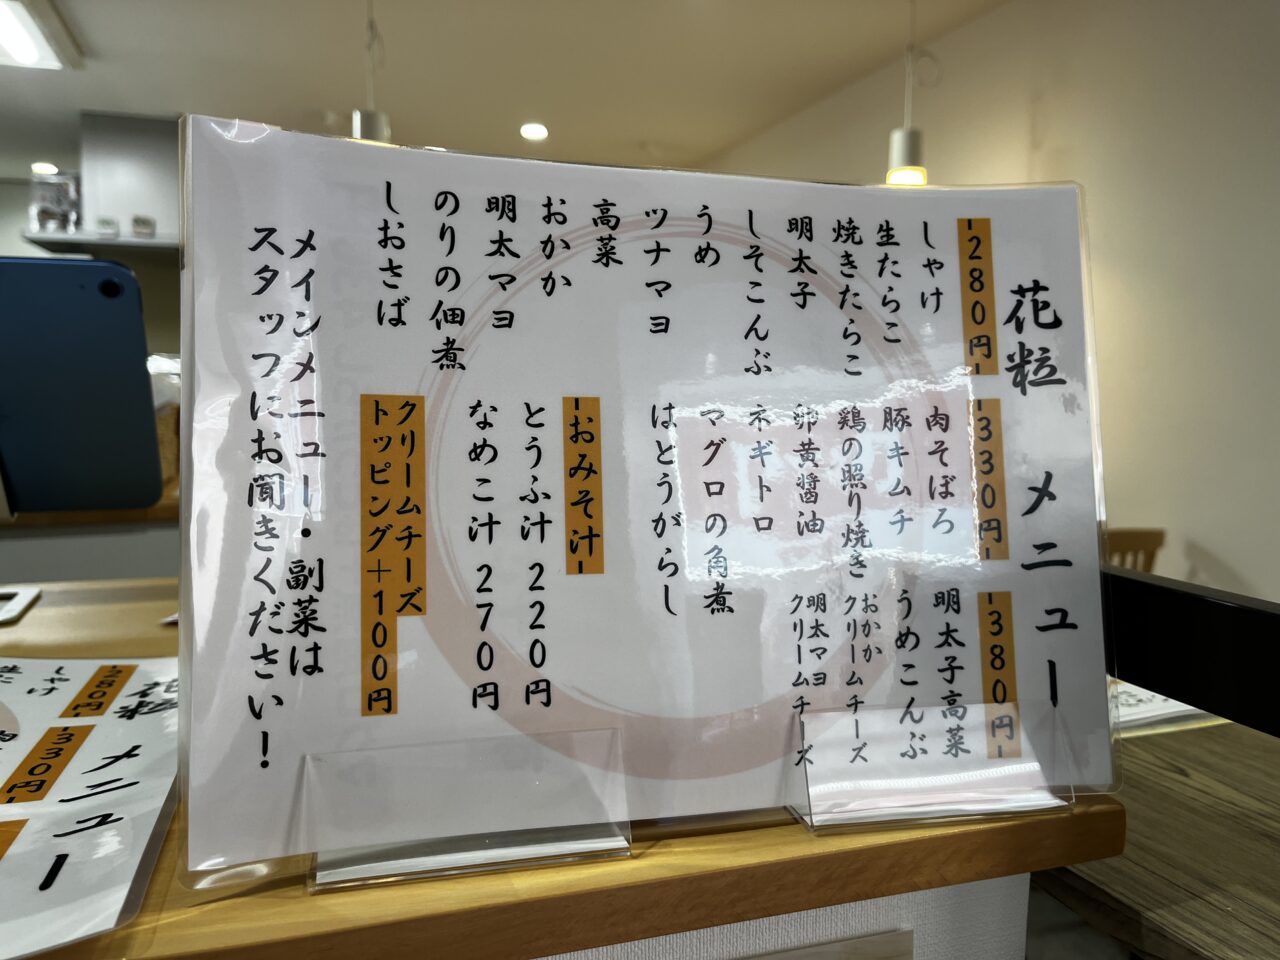 花粒 メニュー
-280円-
しゃけ
生たらこ
焼きたらこ
明太子
しそこんぶ
うめ
ツナマヨ
高菜
おかか
明太マヨ
のりの佃煮
しおさば
-330円-
肉そぼろ
豚キムチ
鶏の照り焼き
卵黄醤油
ネギトロ
マグロの角煮
はとうがらし
-380円-
明太子高菜
うめこんぶ
おかか
クリームチーズ
明太マヨ
クリームチーズ
-おみそ汁-
とうふ汁 220円
なめこ汁 270円
クリームチーズ
トッピング+100円
メインメニュー・副菜は
スタッフにお聞きください!
花粒 メニュー
-280円-
しゃけ
-330円-